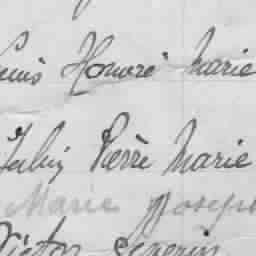 Louis Honoré Marie
Julien Pierre Marie
Marie Joseph
Victor Séverin